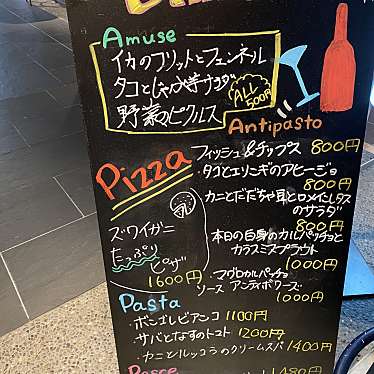 Amuse
イカのフリットとフェンネル
タコとじゃが サラダ
野菜のピクルス
ALL
500円
Antipasto
フィッシュ&チップス 800円
・タコとエリンギのアヒージョ
800円
・カニとだだちゃ豆とロメインレタス
のサラダ
800円
本日の白身のカルパッチョと
カラスミスプラウト
1000円
マグロカルパッチョ
ソース アンティボワーズ
1000円
Pizza
ズワイガニ
たっぷり
ピザ
1600円
Pasta
・ボンゴレビアンコ 1100円
・サバとなすのトマト 1200円
・カニとルッコラのクリームスパ 1400円
Pesce
1480円